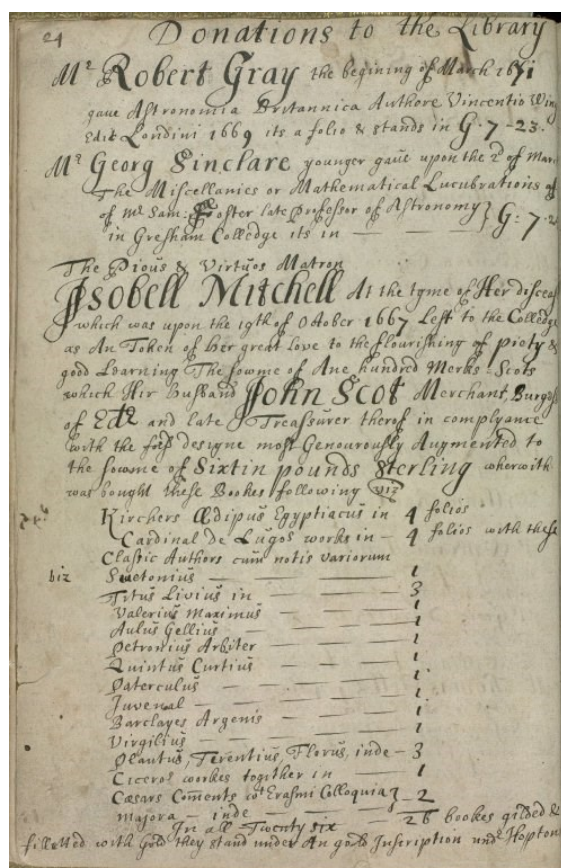 24 Donations to the Library
Mr Robert Gray the begining of March 1671
gave Astronomia Britannica Authore Vincentio Wing
Edit Londini 1669 its a folio & stands in G. 7-23.
Mr Georg Sinclare younger gave upon the 2d of Mar
The Miscellanies or Mathematical Lucubrations of
of Mr Sam: Foster late professor of Astronomy } G: 7. 2
in Gresham Colledge its in — — —
The Pious & Virtuos Matron
Jsobell Mitchell At the tyme of Her diseas
which was upon the 19th of October 1667 Left to the Colledge
as An Token of her great Love to the flourishing of piety &
good Learning The sowme of Ane hundred Merks-Scots
which Her husband John Scot Merchant, Burges
of Edr and late Treasurer therof in complyance
with the design most Genourously Augmented to
the sowme of Sixtin pounds Sterling wherwith
was bought these Bookes following viz
Kirchers Œdipus Egyptiacus in 4 folios
Cardinal de Lugos works in — 4 folios with these
Classic Authors cum notis variorum
viz Suetonius — — — — 1
Titus Livius in — — — 3
Valerius Maximus — — — 1
Aulus Gellius — — — — 1
Petronius Arbiter — — — 1
Quintus Curtius — — — 1
Paterculus — — — — 1
Juvenal — — — — 1
Barclayes Argenis — — — 1
Virgilius — — — — 1
Plautus, Terentius, Florus, inde — 3
Ciceros workes together in — 1
Cæsars Coments wt Erasmi Colloquia } — 2
majora — inde — — — 26 bookes gilded &
In all Twenty six
filletted with Gold they stand under An gold Inscription undr Hopton